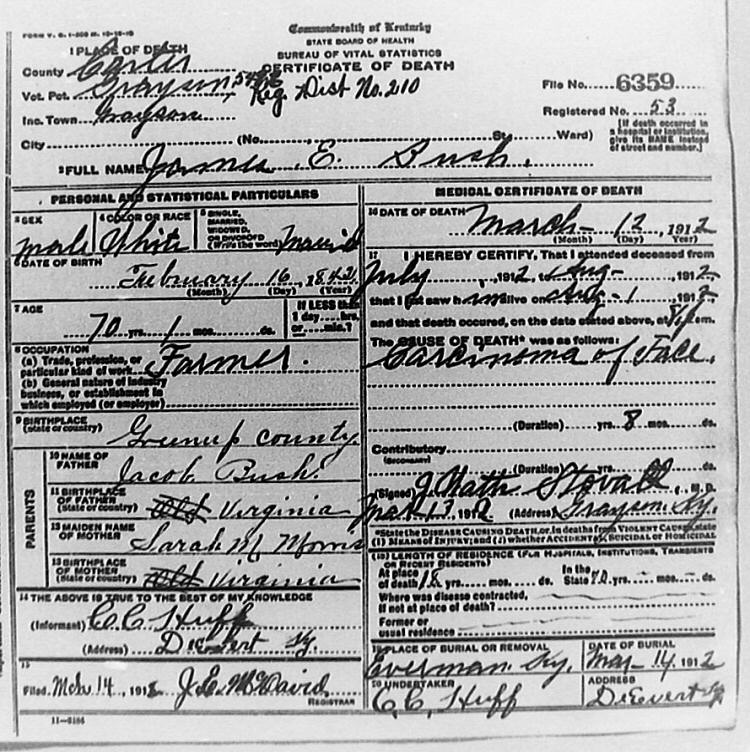 FORM V. S. 1-
Commonwealth of Kentucky
STATE BOARD OF HEALTH
BUREAU OF VITAL STATISTICS
CERTIFICATE OF DEATH
1 PLACE OF DEATH
County Carter
Vot. Pct. Grayson
Reg Dist No. 210
Inc. Town Grayson
City (No. St. Ward)
File No. 6359
Registered No. 53
[If death occurred in a hospital or institution, give its NAME instead of street and number.]
2 FULL NAME James E. Bush.
PERSONAL AND STATISTICAL PARTICULARS
3 SEX male
4 COLOR OR RACE White
5 SINGLE, MARRIED, WIDOWED, OR DIVORCED (Write the word) Married
6 DATE OF BIRTH
February 16, 1842
(Month) (Day) (Year)
7 AGE
70 yrs. 1 mos. ds.
If LESS than 1 day hrs. or min.?
8 OCCUPATION
(a) Trade, profession, or particular kind of work Farmer.
(b) General nature of industry business, or establishment in which employed (or employer)
9 BIRTHPLACE
(State or country) Greenup county
PARENTS
10 NAME OF FATHER Jacob Bush.
11 BIRTHPLACE OF FATHER (State or country) Old Virginia
12 MAIDEN NAME OF MOTHER Sarah M Morris
13 BIRTHPLACE OF MOTHER (State or country) Old Virginia
14 THE ABOVE IS TRUE TO THE BEST OF MY KNOWLEDGE
(Informant) C.C. Huff
(Address) Ky.
15
Filed Mch. 14, 1912 J.E. McDavid
REGISTRAR
11-6186
MEDICAL CERTIFICATE OF DEATH
16 DATE OF DEATH March 12, 1912
(Month) (Day) (Year)
17 I HEREBY CERTIFY, That I attended deceased from
July 1912, to Aug- 1912
that I last saw him alive on Aug-1 1912
and that death occured, on the date stated above, at m.
The CAUSE OF DEATH* was as follows:
Carcinoma of Face.
(Duration) yrs. 8 mos. ds.
Contributory
(SECONDARY)
(Duration) yrs. mos. ds.
(Signed) J. Nath Stovall, M. D.
Mar 13, 1912 (Address) Grayson, Ky.
*State the DISEASE CAUSING DEATH, or, in deaths from VIOLENT CAUSES, state (1) MEANS OF INJURY; and (2) whether ACCIDENTAL, SUICIDAL or HOMICIDAL
18 LENGTH OF RESIDENCE (FOR HOSPITALS, INSTITUTIONS, TRANSIENTS OR RECENT RESIDENTS)
At place of death 18 yrs. mos. ds. In the State 70 yrs. mos. ds.
Where was disease contracted, If not at place of death?
Former or usual residence
19 PLACE OF BURIAL OR REMOVAL Everman Ky.
DATE OF BURIAL Mar 14, 1912
20 UNDERTAKER C.C. Huff
ADDRESS